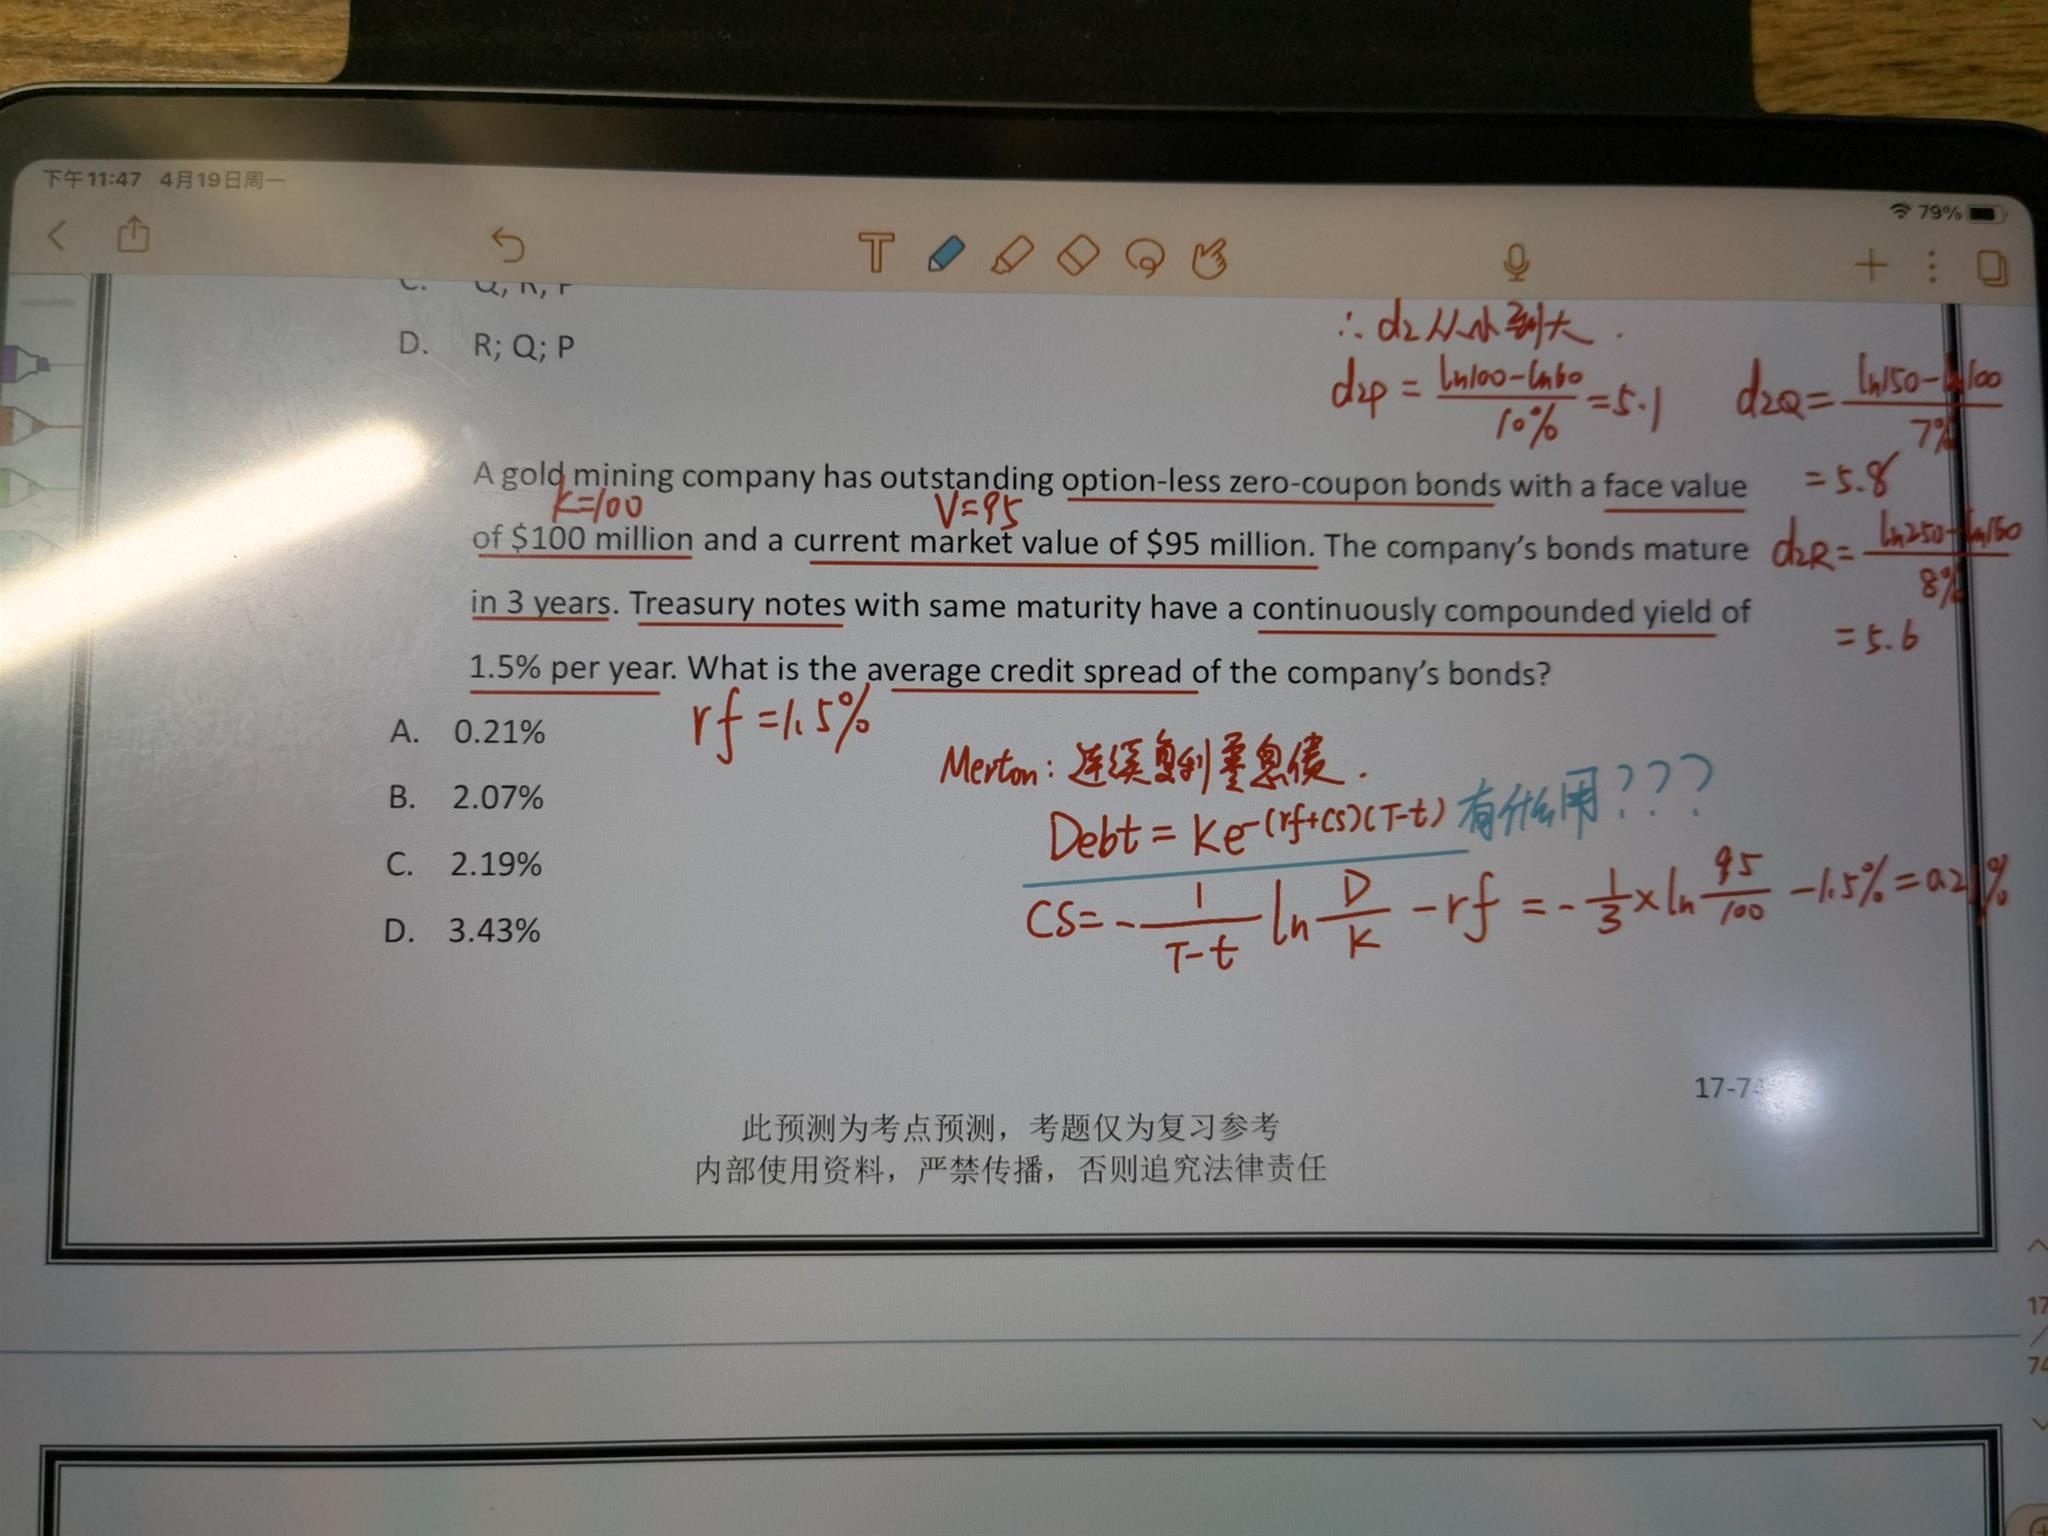 下午11:47 4月19日周一
79%
C. Q; R; P
D. R; Q; P
∴ d2从小到大.
d2P = (ln100-ln60)/10% = 5.1
d2Q = (ln150-ln100)/7%
= 5.8
d2R = (ln250-ln160)/8%
= 5.6
A gold mining company has outstanding option-less zero-coupon bonds with a face value
K=100 V=95
of $100 million and a current market value of $95 million. The company's bonds mature
in 3 years. Treasury notes with same maturity have a continuously compounded yield of
1.5% per year. What is the average credit spread of the company's bonds?
rf=1.5%
A. 0.21%
B. 2.07%
C. 2.19%
D. 3.43%
Merton: 连续复利零息债.
Debt = Ke-(rf+CS)(T-t) 有什么用???
CS = - 1/(T-t) ln D/K - rf = - 1/3 × ln 95/100 - 1.5% = 0.21%
17-74
此预测为考点预测，考题仅为复习参考
内部使用资料，严禁传播，否则追究法律责任
17
/
74